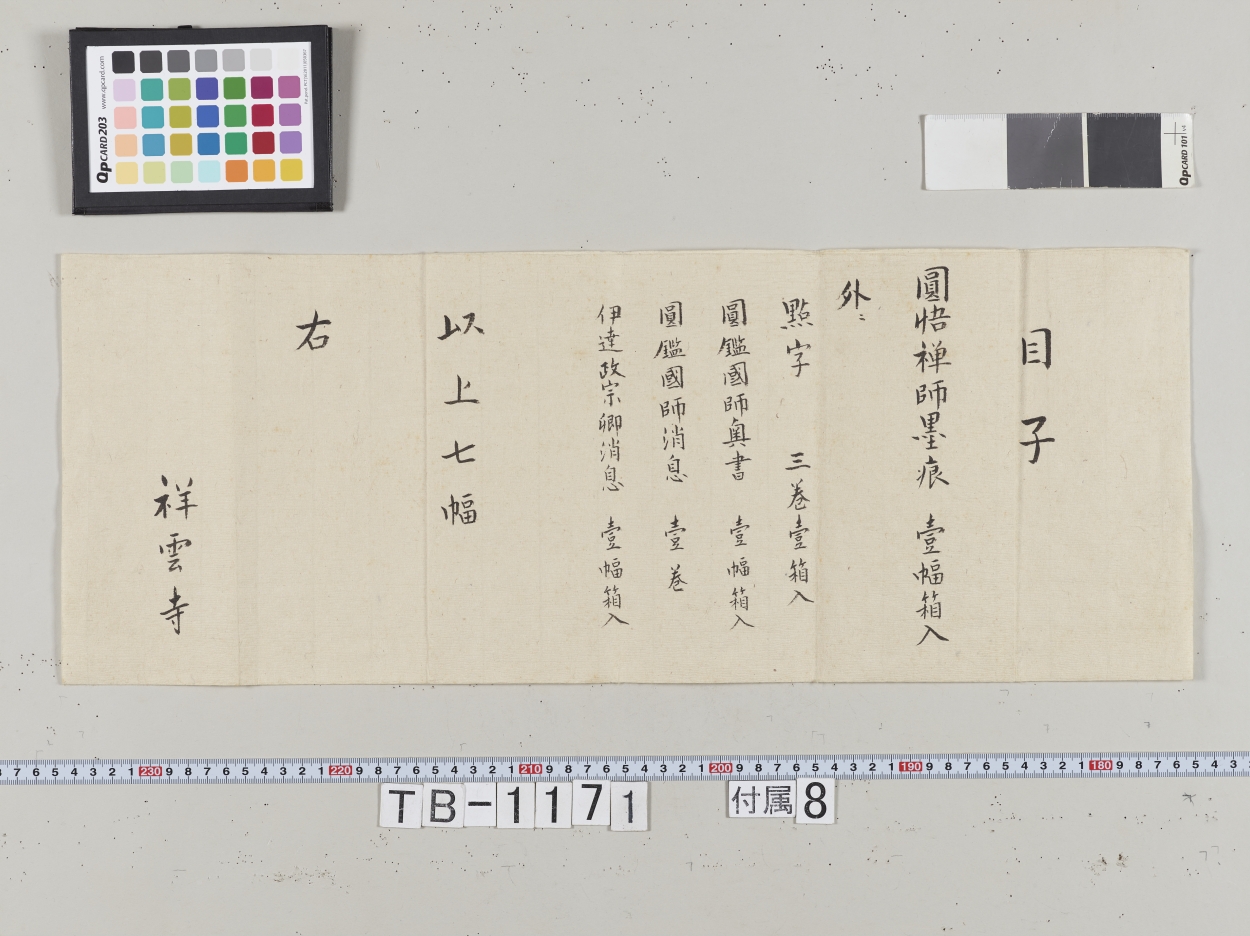 目子
圓悟禅師墨痕　壹幅箱入
外ニ
點字　三巻壹箱入
圓鑑國師奥書　壹幅箱入
圓鑑國師消息　壹巻
伊達政宗卿消息　壹幅箱入
以上七幅
右
祥雲寺
QpCARD 203 www.qpcard.com
QpCARD 101 v4
8 7 6 5 4 3 2 1 230 9 8 7 6 5 4 3 2 1 220 9 8 7 6 5 4 3 2 1 210 9 8 7 6 5 4 3 2 1 200 9 8 7 6 5 4 3 2 1 190 9 8 7 6 5 4 3 2 1 180 9 8 7 6 5 4 3
TB-1171 付属8